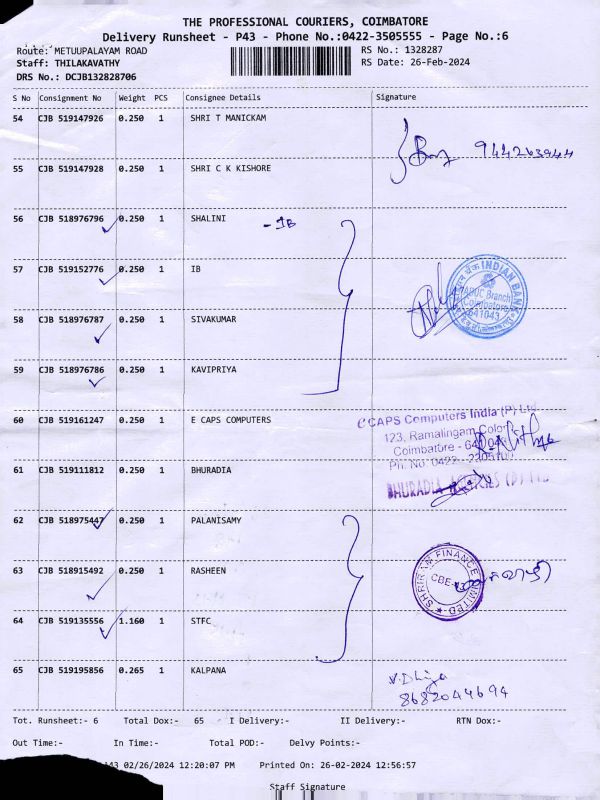 THE PROFESSIONAL COURIERS, COIMBATORE
Delivery Runsheet - P43 - Phone No.:0422-3505555 - Page No.:6
Route: METUUPALAYAM ROAD RS No.: 1328287
Staff: THILAKAVATHY RS Date: 26-Feb-2024
DRS No.: DCJB132828706
S No Consignment No Weight PCS Consignee Details Signature
54 CJB 519147926 0.250 1 SHRI T MANICKAM
9442263944
55 CJB 519147928 0.250 1 SHRI C K KISHORE
56 CJB 518976796 0.250 1 SHALINI - IB
57 CJB 519152776 0.250 1 IB
INDIAN BANK
Branch
Coimbatore
641043
58 CJB 518976787 0.250 1 SIVAKUMAR
59 CJB 518976786 0.250 1 KAVIPRIYA
60 CJB 519161247 0.250 1 E CAPS COMPUTERS
eCAPS Computers India (P) Ltd
123, Ramalingam Colony
Coimbatore - 641
Ph. No: 0422 -
61 CJB 519111812 0.250 1 BHURADIA
BHURADIA
62 CJB 518975447 0.250 1 PALANISAMY
63 CJB 518915492 0.250 1 RASHEEN
SHRIRAM FINANCE LIMITED
CBE
64 CJB 519135556 1.160 1 STFC
65 CJB 519195856 0.265 1 KALPANA
V. Dhiya
8682044694
Tot. Runsheet:- 6 Total Dox:- 65 I Delivery:- II Delivery:- RTN Dox:-
Out Time:- In Time:- Total POD:- Delvy Points:-
02/26/2024 12:20:07 PM Printed On: 26-02-2024 12:56:57
Staff Signature